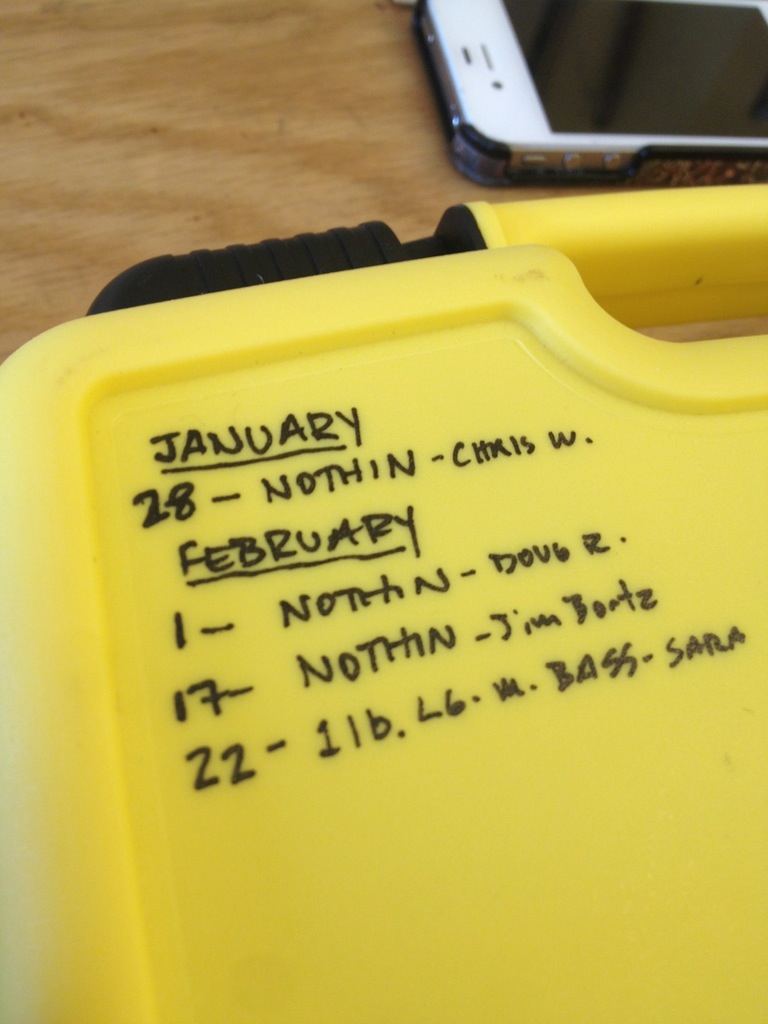 JANUARY
28 - NOTHIN - CHRIS W.
FEBRUARY
1 - NOTHIN - DOUG R.
17 - NOTHIN - Jim Bortz
22 - 1 lb. LG. M. BASS - SARA